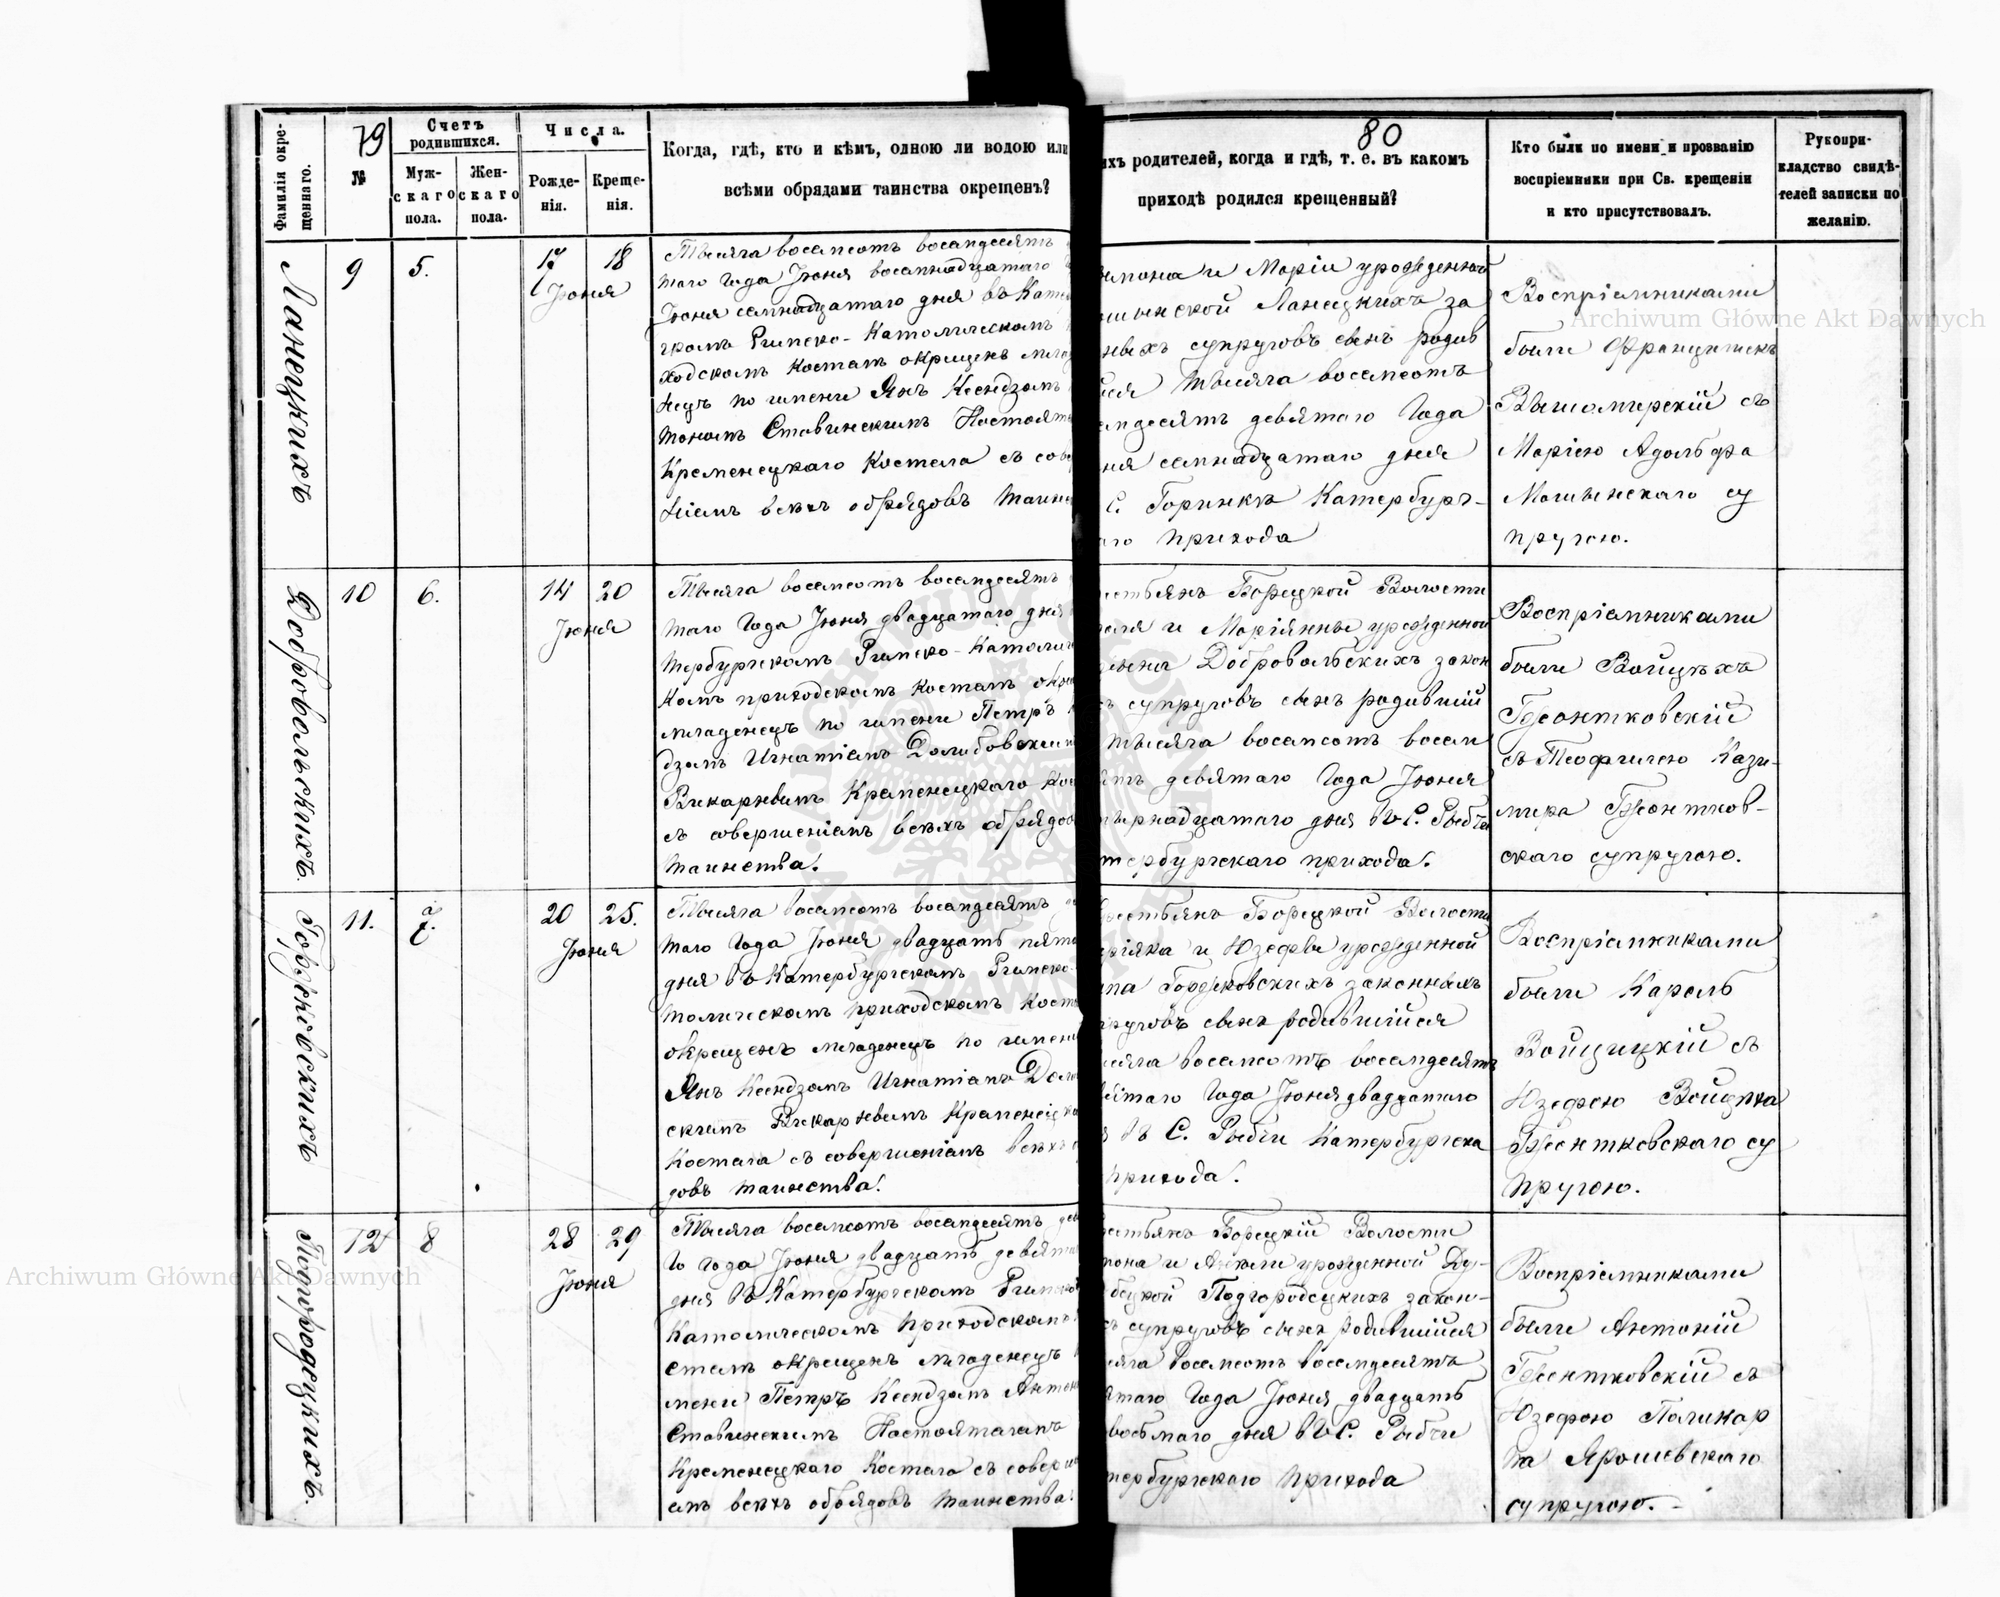 79
Фамилія окре-
щеннаго.
№
Счетъ
родившихся.
Муж-
скаго
пола.
Жен-
скаго
пола.
Числа.
Рожде-
нія.
Креще-
нія.
Когда, гдѣ, кто и кѣмъ, одною ли водою или
всѣми обрядами таинства окрещенъ?
Ланецкихъ
9
5.
17
18
Іюня
Тысяча восемсотъ восемдесятъ
таго Года Іюня восемнадцатаго
Іюня семнадцатаго дня въ Кате
гскомъ Римско-Католическомъ
ходскомъ Костелѣ окрещенъ мла
нецъ по имени Янъ Ксендзомъ
тономъ Ставинскимъ Настояте
Кременецкаго Костела съ сове
ніемъ всѣхъ обрядовъ Таин
Добровольскихъ.
10
6.
14
20
Іюня
Тысяча восемсотъ восемдесятъ
таго Года Іюня двадцатаго дня
тербургскомъ Римско-Католич
комъ приходскомъ Костелѣ окре
младенецъ по имени Петръ
дзомъ Игнатіемъ
Викаріемъ Кременецкаго Кос
съ совершеніемъ всѣхъ обрядов
таинства.
11.
7.
20
25.
Іюня
Тысяча восемсотъ восемдесятъ
таго Года Іюня двадцать пята
дня въ Катербургскомъ Римско-
толическомъ приходскомъ Косте
окрещенъ младенецъ по имени
Янъ Ксендзомъ Игнатіемъ
скимъ Викаріемъ Кременецка
Костела съ совершеніемъ всѣхъ
довъ таинства.
Подгородецкихъ.
12
8
28
29
Іюня
Тысяча восемсотъ восемдесятъ дев
го года Іюня двадцать девята
дня въ Катербургскомъ Римско
Католическомъ Приходскомъ
стелѣ окрещенъ младенецъ
мени Петръ Ксендзомъ Антон
Ставинскимъ Настоятелемъ
Кременецкаго Костела съ соверше
емъ всѣхъ обрядовъ таинства.
80
ихъ родителей, когда и гдѣ, т. е. въ какомъ
приходѣ родился крещенный?
Кто были по имени и прозванію
воспріемники при Св. крещеніи
и кто присутствовалъ.
Рукопри-
кладство свидѣ-
телей записки по
желанію.
имона и Маріи урожденной
шынской Ланецкихъ за
ныхъ супруговъ сынъ родив
ійся Тысяча восемсотъ
емдесятъ девятаго Года
ня семнадцатаго дня
С. Горинкѣ Катербург-
го прихода
Воспріемниками
были Францишекъ
съ
Маріею Адольфа
Мошынскаго су
пругою.
естьянъ Борецкой Волости
и Маріянны урожденной
Добровольскихъ закон
ъ супруговъ сынъ родившій
Тысяча восемсотъ восем
ятъ девятаго Года Іюня
тырнадцатаго дня въ С. Рыбчи
тербургскаго прихода.
Воспріемниками
были Войцѣхъ
Гжонтковскій
съ Теофилею Кази-
мира Гжонтков-
скаго супругою.
рестьянъ Борецкой Волости
и Юзефы урожденной
законныхъ
пруговъ сынъ родившійся
ысяча восемсотъ восемдесятъ
вятаго Года Іюня двадцатаго
въ С. Рыбчи Катербургска
прихода.
Воспріемниками
были Кароль
Войцицкій съ
Юзефою Войцѣха
Гжонтковскаго су
пругою.
естьянъ Борецкій Волости
и урожденной Ду-
бецкой Подгородецкихъ закон-
ъ супруговъ сынъ родившійся
сяча восемсотъ восемдесятъ
ятаго Года Іюня двадцать
восьмаго дня въ С. Рыбчи
тербургскаго прихода
Воспріемниками
были Антоній
Гжонтковскій съ
Юзефою Поликар
па Ярошевскаго
супругою.-
Archiwum Główne Akt Dawnych
Archiwum Główne Akt Dawnych